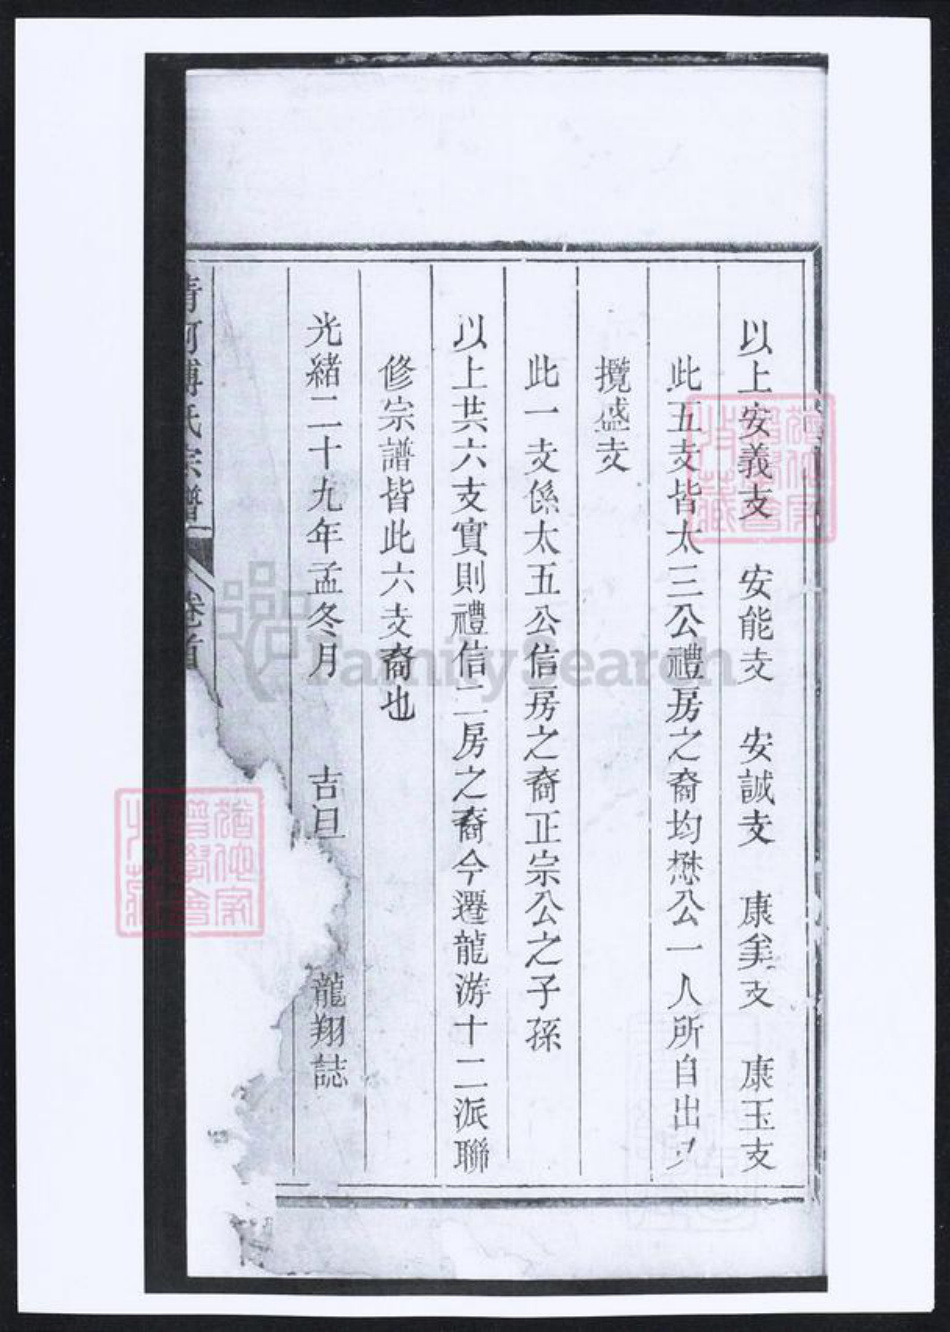 以上安義支　安能支　安誠支　康美支　康玉支
此五支皆太三公禮房之裔均懋公一人所自出
攬盛支
此一支係太五公信房之裔正宗公之子孫
以上共六支實則禮信二房之裔今遷龍游十二派聯
修宗譜皆此六支裔也
光緒二十九年孟冬月　吉旦　龍翔誌
清河傅氏宗譜　卷首
FamilySearch